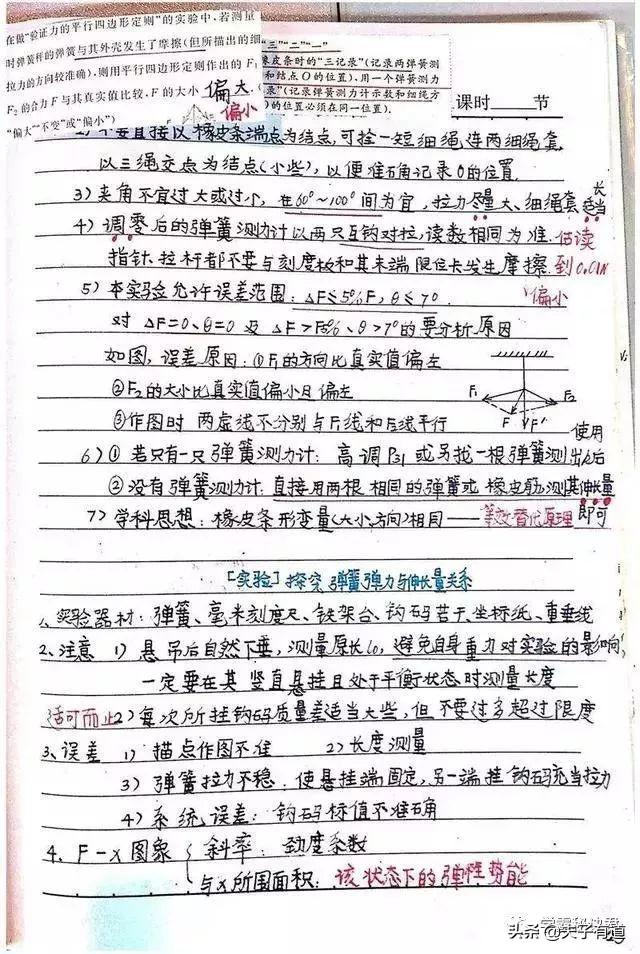 在做“验证力的平行四边形定则”的实验中,若测量
时弹簧秤的弹簧与其外壳发生了摩擦(但所描出的细
拉力的方向较准确),则用平行四边形定则作出的F₁
F₂的合力F与其真实值比较,F的大小 偏大.(
“偏大”“不变”或“偏小”) 偏小
“三”“二”“一”
橡皮条时的“三记录”(记录两弹簧测
和结点O的位置),用一个弹簧测力
录”(记录弹簧测力计示数和细绳方
)的位置必须在同一位置).
课时 节
不要直接以橡皮条端点为结点,可拴一短细绳连两细绳套
以三绳交点为结点(小些),以便准确记录O的位置
3)夹角不宜过大或过小,在60°~100°间为宜,拉力尽量大、细绳套适当长
4)调零后的弹簧测力计以两只互钩对拉,读数相同为准.估读
指针.拉杆都不要与刻度板和其末端限位卡发生摩擦 到0.01N
5)本实验允许误差范围:ΔF≤5%F,θ≤7°. 偏小
对 ΔF=0、θ=0 及 ΔF>F5%、θ>7°的要分析原因
如图,误差原因:①F₁的方向比真实值偏左
②F₂的大小比真实值偏小且偏左
③作图时 两虚线不分别与F₁线和F₂线平行
F₁ F₂ F F′
6)①若只有一只弹簧测力计:高调P31 或另找一根弹簧测出l₀后使用
②没有弹簧测力计:直接用两根相同的弹簧或橡皮筋,测其伸长量即可
7)学科思想:橡皮条形变量(大小方向)相同——等效替代原理
[实验]探究弹簧弹力与伸长量关系
1、实验器材:弹簧、毫米刻度尺、铁架台、钩码若干、坐标纸、重垂线
2、注意 1)悬吊后自然下垂,测量原长l₀,避免自身重力对实验的影响
一定要在其竖直悬挂且处于平衡状态时测量长度
适可而止 2)每次所挂钩码质量差适当大些,但不要过多超过限度
3、误差 1)描点作图不准 2)长度测量
3)弹簧拉力不稳:使悬挂端固定,另一端挂钩码充当拉力
4)系统误差:钩码标值不准确
4、F-x图象 斜率:劲度系数
与x所围面积:该状态下的弹性势能
头条@夫子有道